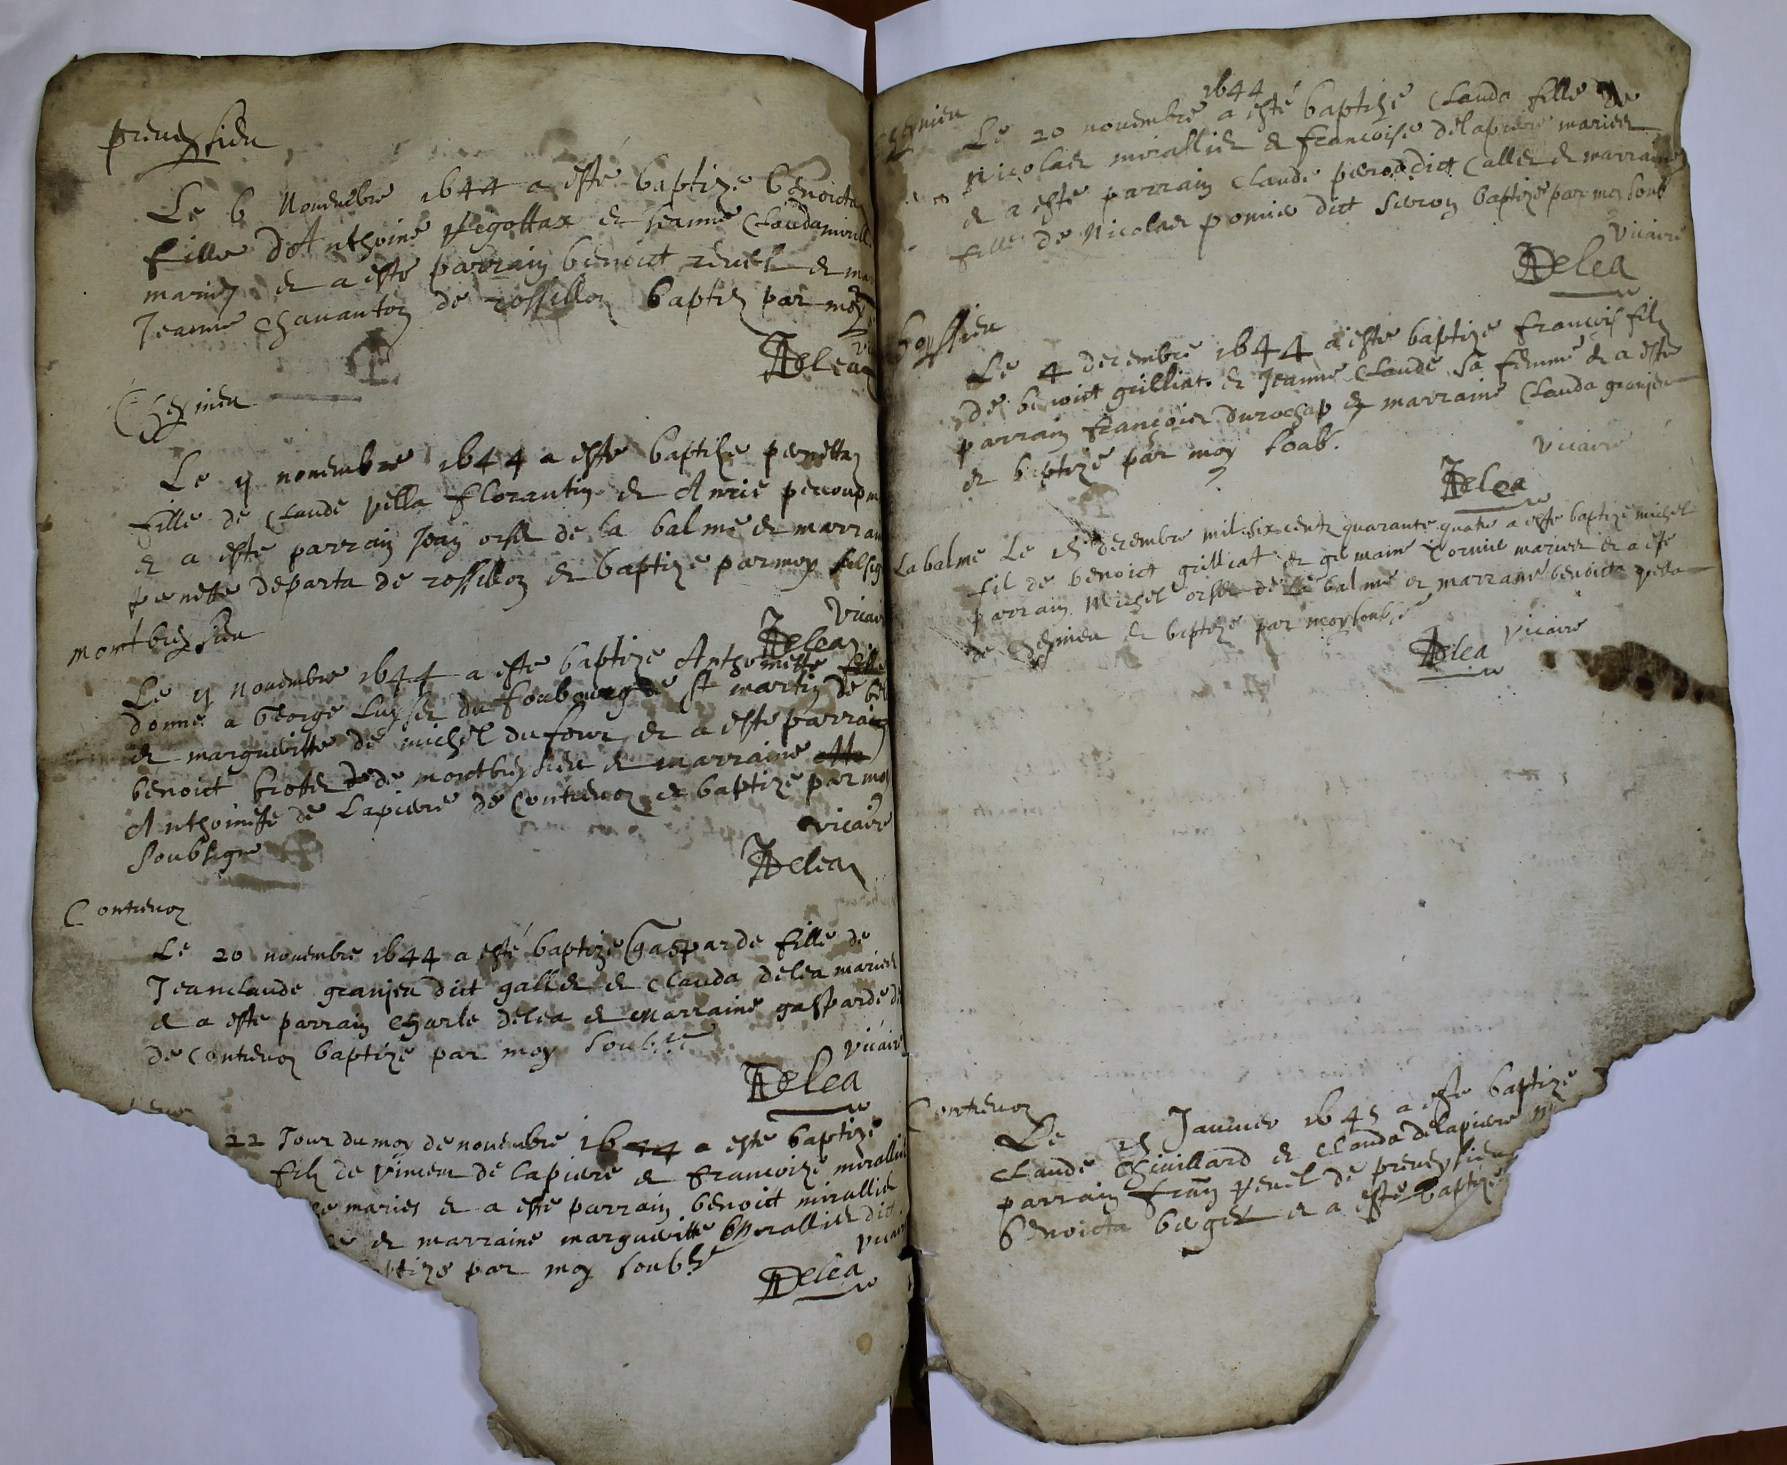 preueyssieu
Le 6 Nouembre 1644 a esté baptize benoicta
fille d'Anthoine et Jeanne Clauda
mariez et a este parrain benoict reuel et
Jeanne chauanton de rossillon baptize par moy
Adelea
Cheysnieu
Le 11 nouembre 1644 a este baptize penetta
fille de Claude vella florantin et Anne
et a este parrain Jean orset de la balme et
penette departa de rossillon et baptize par moy
Vicaire
Adelea
montbreyssieu
Le 11 nouembre 1644 a este baptize Anthoinette fille
donné a George du foubourg de st martin de
et margueritte de michel dufour et a este parrain
benoict de montbreyssieu et marraine
Anthoinette de Lapierre de Contreuoz et baptize par moy
Vicaire
soubsigne
Adelea
Contreuoz
Le 20 nouembre 1644 a esté baptize Gasparde fille de
Jeanclaude granjeu dict gallet et Clauda delea mariez
et a este parrain charle delea et marraine gasparde
de Contreuoz baptize par moy soub.ne
Vicaire
Adelea
22 Jour du moy de nouembre 1644 a esté baptize
filz de Vincen de lapierre et francoize mirallier
mariés et a este parrain benoict mirallier
et marraine margueritte mirallier dict
par moy soub.ne
Vicaire
Adelea
1644
Le 20 nouembre a esté baptize Clauda fille de
Nicolas mirallier et francoise delapierre mariez
et a este parrain Claude dict Callet et marraine
fille de Nicolas dict baptize par moy soub
Vicaire
Adelea
boyssieu
Le 4 decembre 1644 a este baptize francois filz
de benoict grilliat et Jeanne Claude sa femme et a este
parrain francois et marraine Clauda granjeu
et baptize par moy soub.
Vicaire
Adelea
La balme Le 15 decembre mil six centz quarante quatre a este baptize michel
fil de benoict grilliat et germaine mariez et a este
parrain michel orset de la balme et marraine benoicta vella
de Cheysnieu et baptize par moy soub.
Vicaire
Adelea
Contreuoz
Le 15 Januier 1645 a este baptize
Claude Chiuillard et Clauda delapierre
parrain reuel de preueyssieu
benoicta berger et a este baptize